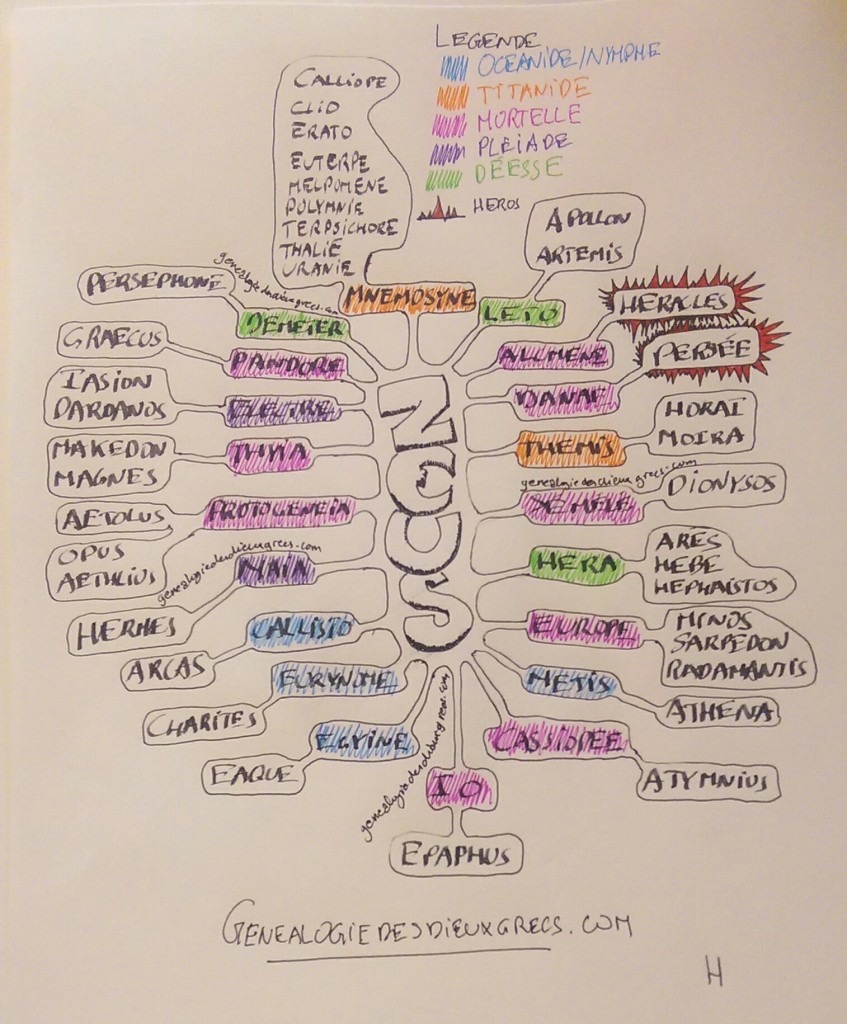 LEGENDE
OCEANIDE/NYMPHE
TITANIDE
MORTELLE
PLEIADE
DÉESSE
HEROS
CALLIOPE
CLIO
ERATO
EUTERPE
MELPOMENE
POLYMNIE
TERPSICHORE
THALIE
URANIE
MNEMOSYNE
APOLLON
ARTEMIS
LETO
PERSEPHONE
genealogiedesdieuxgrecs.com
DEMETER
HERACLES
ALCMENE
GRAECUS
PANDORE
PERSÉE
DANAE
IASION
DARDANOS
ELECTRE
HORAÏ
MOIRA
THEMIS
MAKEDON
MAGNES
THYIA
genealogiedesdieuxgrecs.com
DIONYSOS
SEMELE
AETOLUS
PROTOGENEIA
OPUS
AETHLIUS
genealogiedesdieuxgrecs.com
ZEUS
ARES
HEBE
HEPHAÏSTOS
HERA
MAIA
HERMES
CALLISTO
ARCAS
MINOS
SARPEDON
RADAMANTIS
EUROPE
EURYNOME
CHARITES
METIS
ATHENA
EGYINE
EAQUE
genealogiedesdieuxgrecs.com
CASSIOPEE
ATYMNIUS
IO
EPAPHUS
GENEALOGIEDESDIEUXGRECS.COM
H